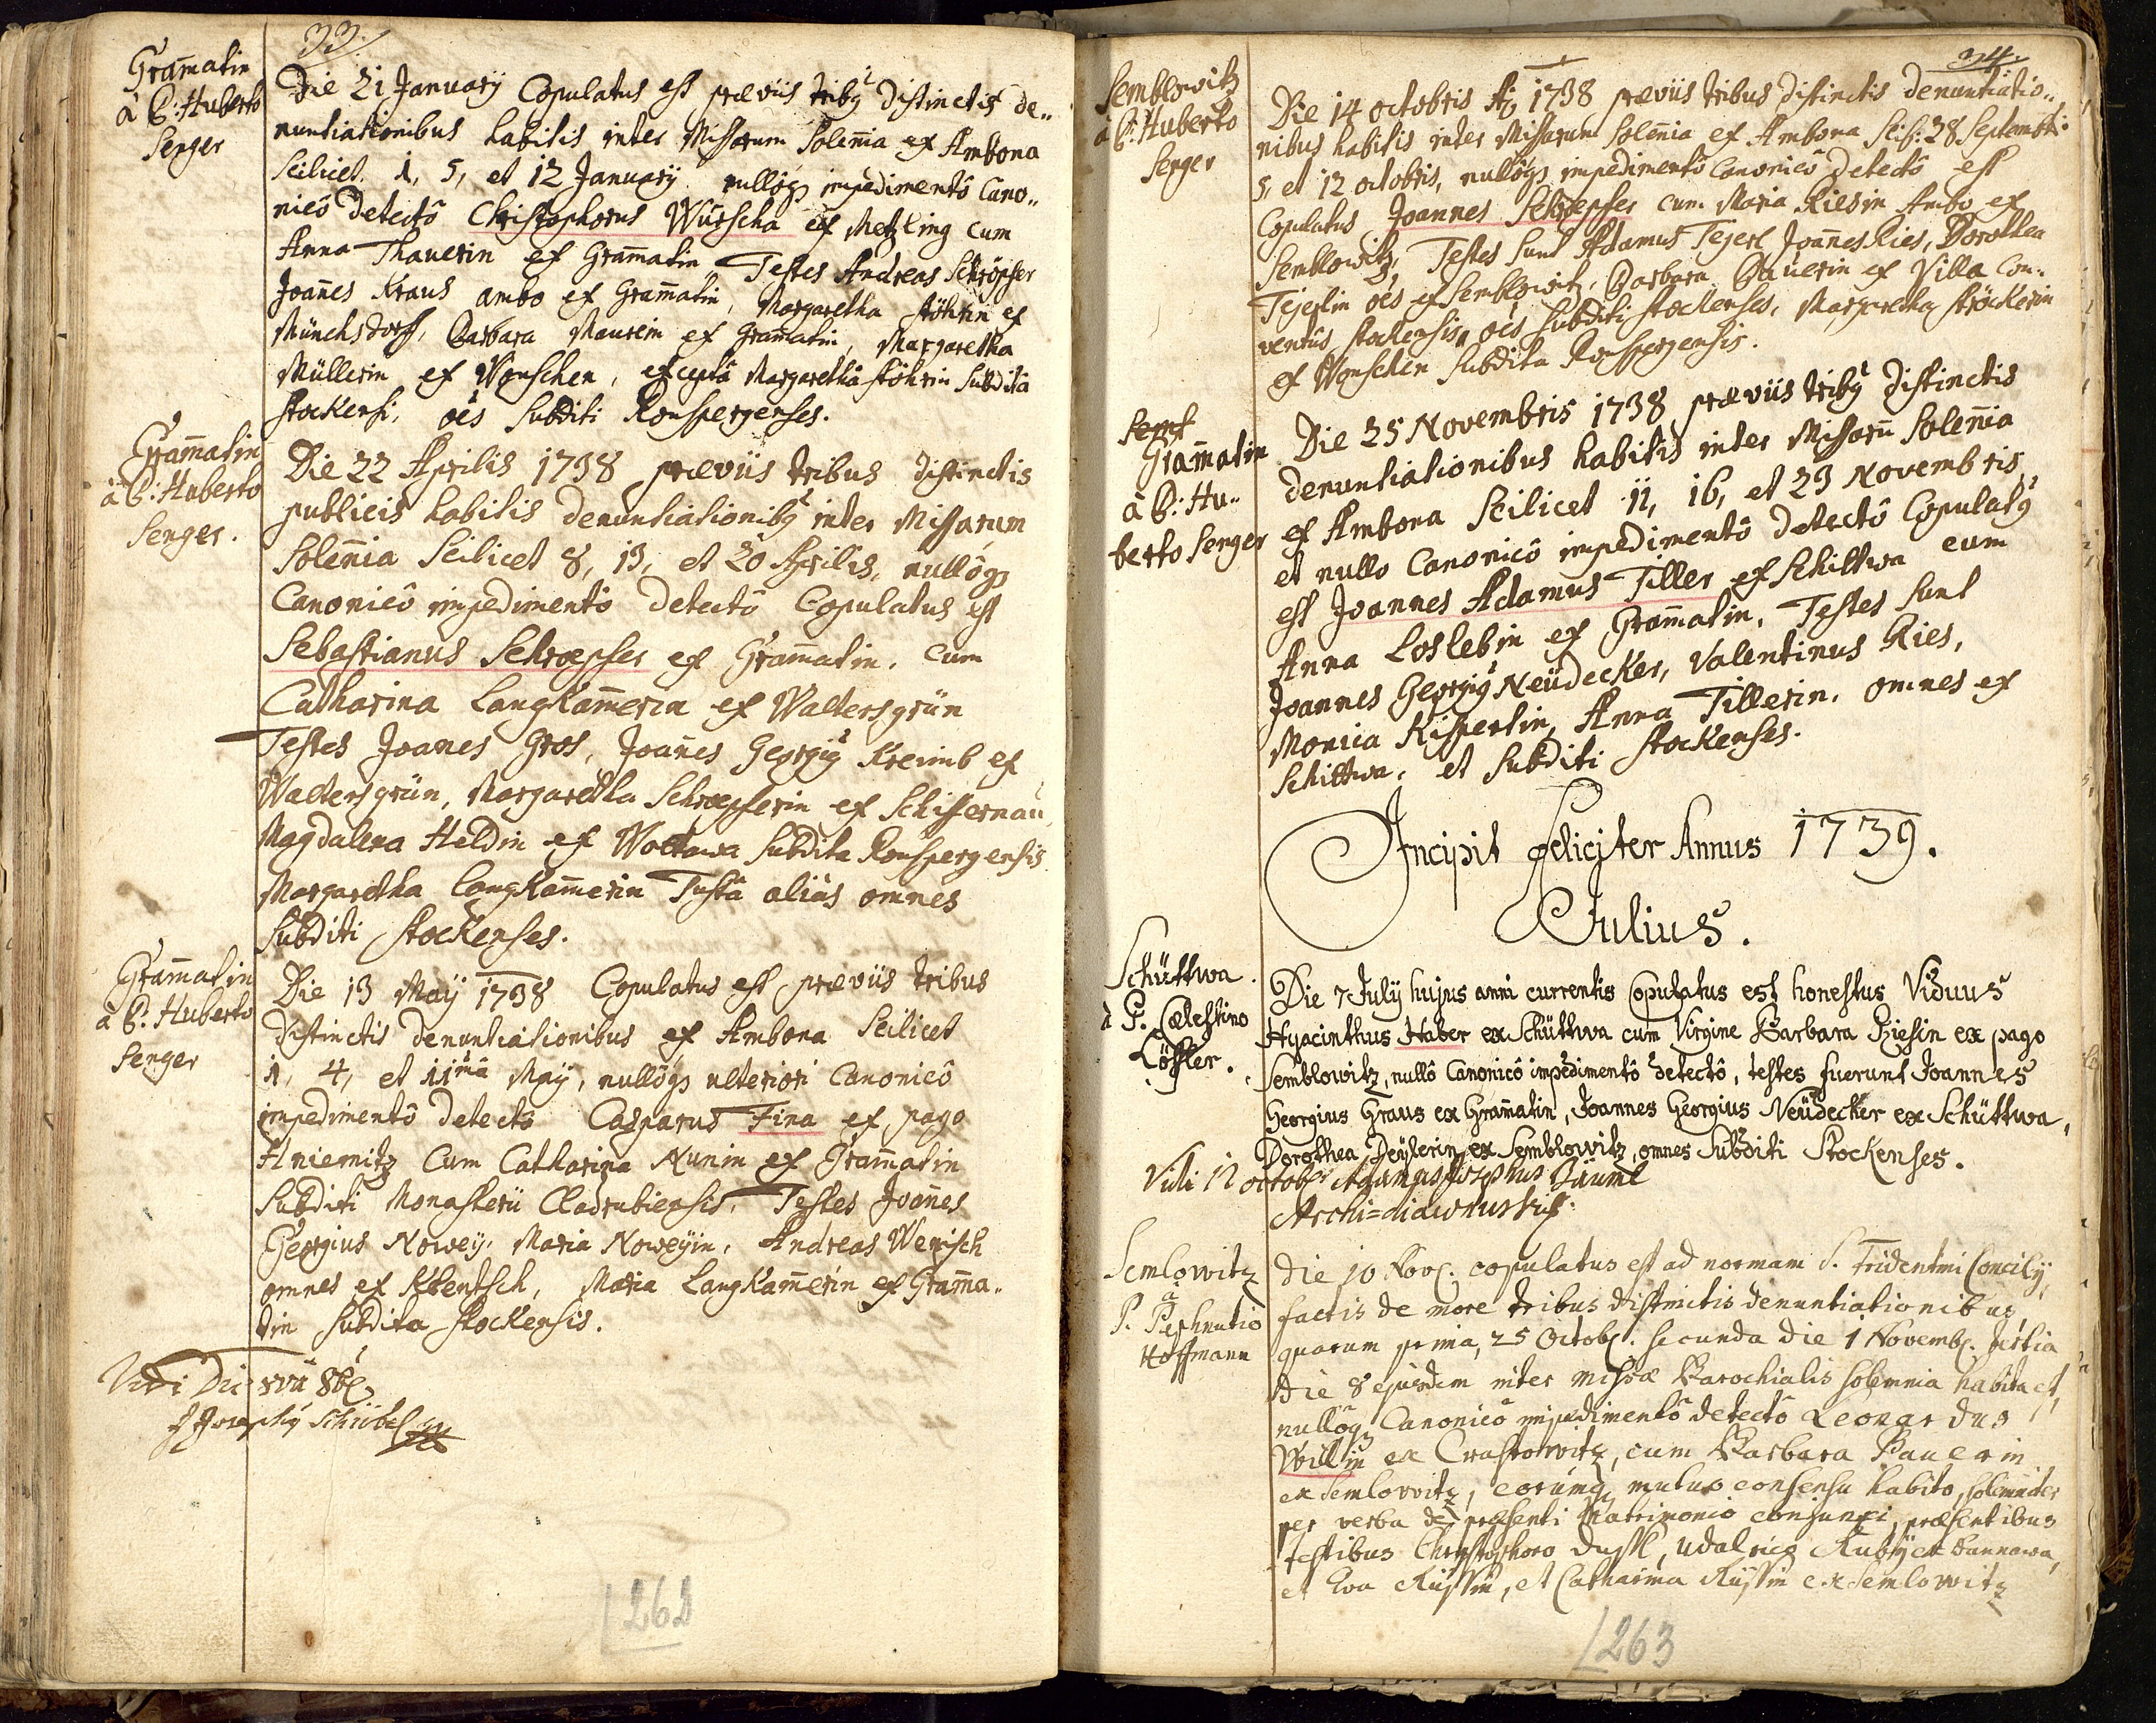 33.
Gram̄atin
à P: Huberto
Senger
Die 21 January Copulatus est præviis tribq distinctis de„
nuntiationibus habitis inter Missarum Solen̄ia ex Ambona
Scilicet. 1, 5, et 12 January nullôqz impedimentô Cano„
nicô detectô Christophorus Würscha ex Metzling cum
Anna Thauerin ex Gram̄atin Testes Andreas Schröpfer
Joan̄es Kraus ambo ex Gram̄atin, Margaretha Köhrin ex
Münchsdorff, Barbara Maurerin ex Gram̄atin, Margaretha
Müllerin ex Wonschen, exceptâ Margarethâ Köhrin Subditâ
stockensi, oēs Subditi Ronspergenses.
Gram̄atin
à P: Huberto
Senger.
Die 22 Aprilis 1738 præviis tribus distinctis
publicis habitis denuntiationibq inter Missarum
Solen̄ia Scilicet 8, 13, et 20 Aprilis, nullôqz
Canonicô impedimentô detectô Copulatus est
Sebastianus Schroepfer ex Gram̄atin. cum
Catharina Langkam̄erin ex Waltersgrün
Testes Joan̄es Gros, Joan̄es Georgiq Kreimb ex
Waltersgrün, Margaretha Schroepferin ex Schifernau,
Magdalena Heldin ex Wottawa Subdita Ronspergensis
Margaretha Langkam̄erin Testa aliàs omnes
Subditi stockenses.
Gram̄atin
à P: Huberto
Senger
Die 13 May 1738 Copulatus est præviis tribus
distinctis denuntiationibus ex Ambona Scilicet
1, 4, et 11mâ May, nullôqz ulteriori Canonicô
impedimentô detectô Casparus Fina ex pago
Hniemitz Cum Catharina Nunin ex Gram̄atin
Subditi Monasterii Cladrubiensis, Testes Joan̄es
Georgius Nowey, Maria Noweyin, Andreas Wenisch
omnes ex Kbentsch, Maria Langkam̄erin ex Gram̄a„
tin Subdita stockensis.
Vidi Die 8va 8br
262
34.
Semblowitz
à P: Huberto
Senger
Die 14 octobris Aõ 1738 præviis tribus distinctis denuntiatio„
nibus habitis inter Missarum Solen̄ia ex Ambona Scil: 28 Septembris
5, et 12 octobris, nullôqz impedimentô Canonicô detectô est
Copulatus Joannes Schroepfer cum Maria Riesin Ambo ex
Semblowitz, Testes sunt Adamus Tejerl Joan̄es Ries, Dorothea
Tejerlin oēs ex Semblowitz, Barbara Bauerin ex Villa Con„
ventûs stockensis, oēs Subditi stockenses, Margaretha Ströckerin
ex Wonschen Subdita Ronspergensis.
Sem
Gram̄atin
à P: Hu„
berto Senger
Die 25 Novembris 1738 præviis tribq distinctis
denuntiationibus habitis inter Missarū Solen̄ia
ex Ambona Scilicet 11, 16, et 23 Novembris
et nullo Canonicô impedimentô detectô Copulatq
est Joannes Adamus Tiller ex Schittwa cum
Anna Loslebin ex Gram̄atin, Testes sunt
Joannes Georgiq Neüdecker, Valentinus Ries,
Monica Kisperlin, Anna Tillerin, omnes ex
Schittwa, et Subditi stockenses.
Incipit feliciter Annus 1739.
Julius.
Schüttwa.
à P. Cælestino
Löffler.
Die 7 July hujus anni currentis Copulatus est honestus Viduus
Hyacinthus Haber ex Schüttwa cum Virgine Barbara Riesin ex pago
Semblowitz, nullô Canonicô impedimentô detectô, testes fuerunt Joannes
Georgius Graus ex Gram̄atin, Joannes Georgius Neüdecker ex Schüttwa,
Dorothea Deÿlerin ex Semblowitz, omnes Subditi Stockenses.
Vidi 12 octobr Adamus Josephus Bäuml
Archi=diaconus
Semlowitz
à
P. Paphnutio
Hoffmann
Die 10 Nov. copulatus est ad normam S. Tridentini Concily,
factis de more tribus distinctis denuntiationibus
quarum prima, 25 Octob. secunda die 1 Novemb. tertia
die 8 ejusdem inter missæ Parochialis solemnia habita est
nullôqz Canonicô impedimentô detectô Leonardus
Willin ex Crastowitz, cum Barbara Bauerin
ex Semlowitz, eorumqz mutuo consensu habito, solemniter
per verba de præsenti Matrimonio conjunxi, præsentibus
testibus Christophoro Dussl, Udalrico Kuby ex Tannawa,
et Eva Rüssin, et Catharina Rüssin ex Semlowitz
263